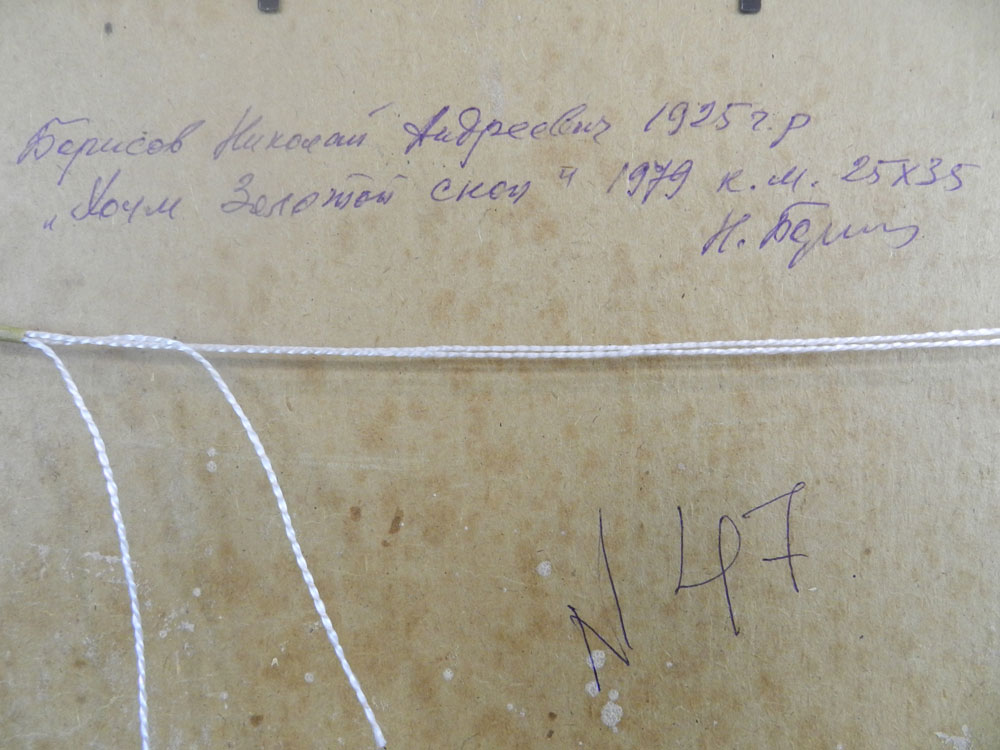 Борисов Николай Андреевич 1925 г.р
„Холм Золотой сноп" 1979 к.м. 25х35
Н. Борис
N 47